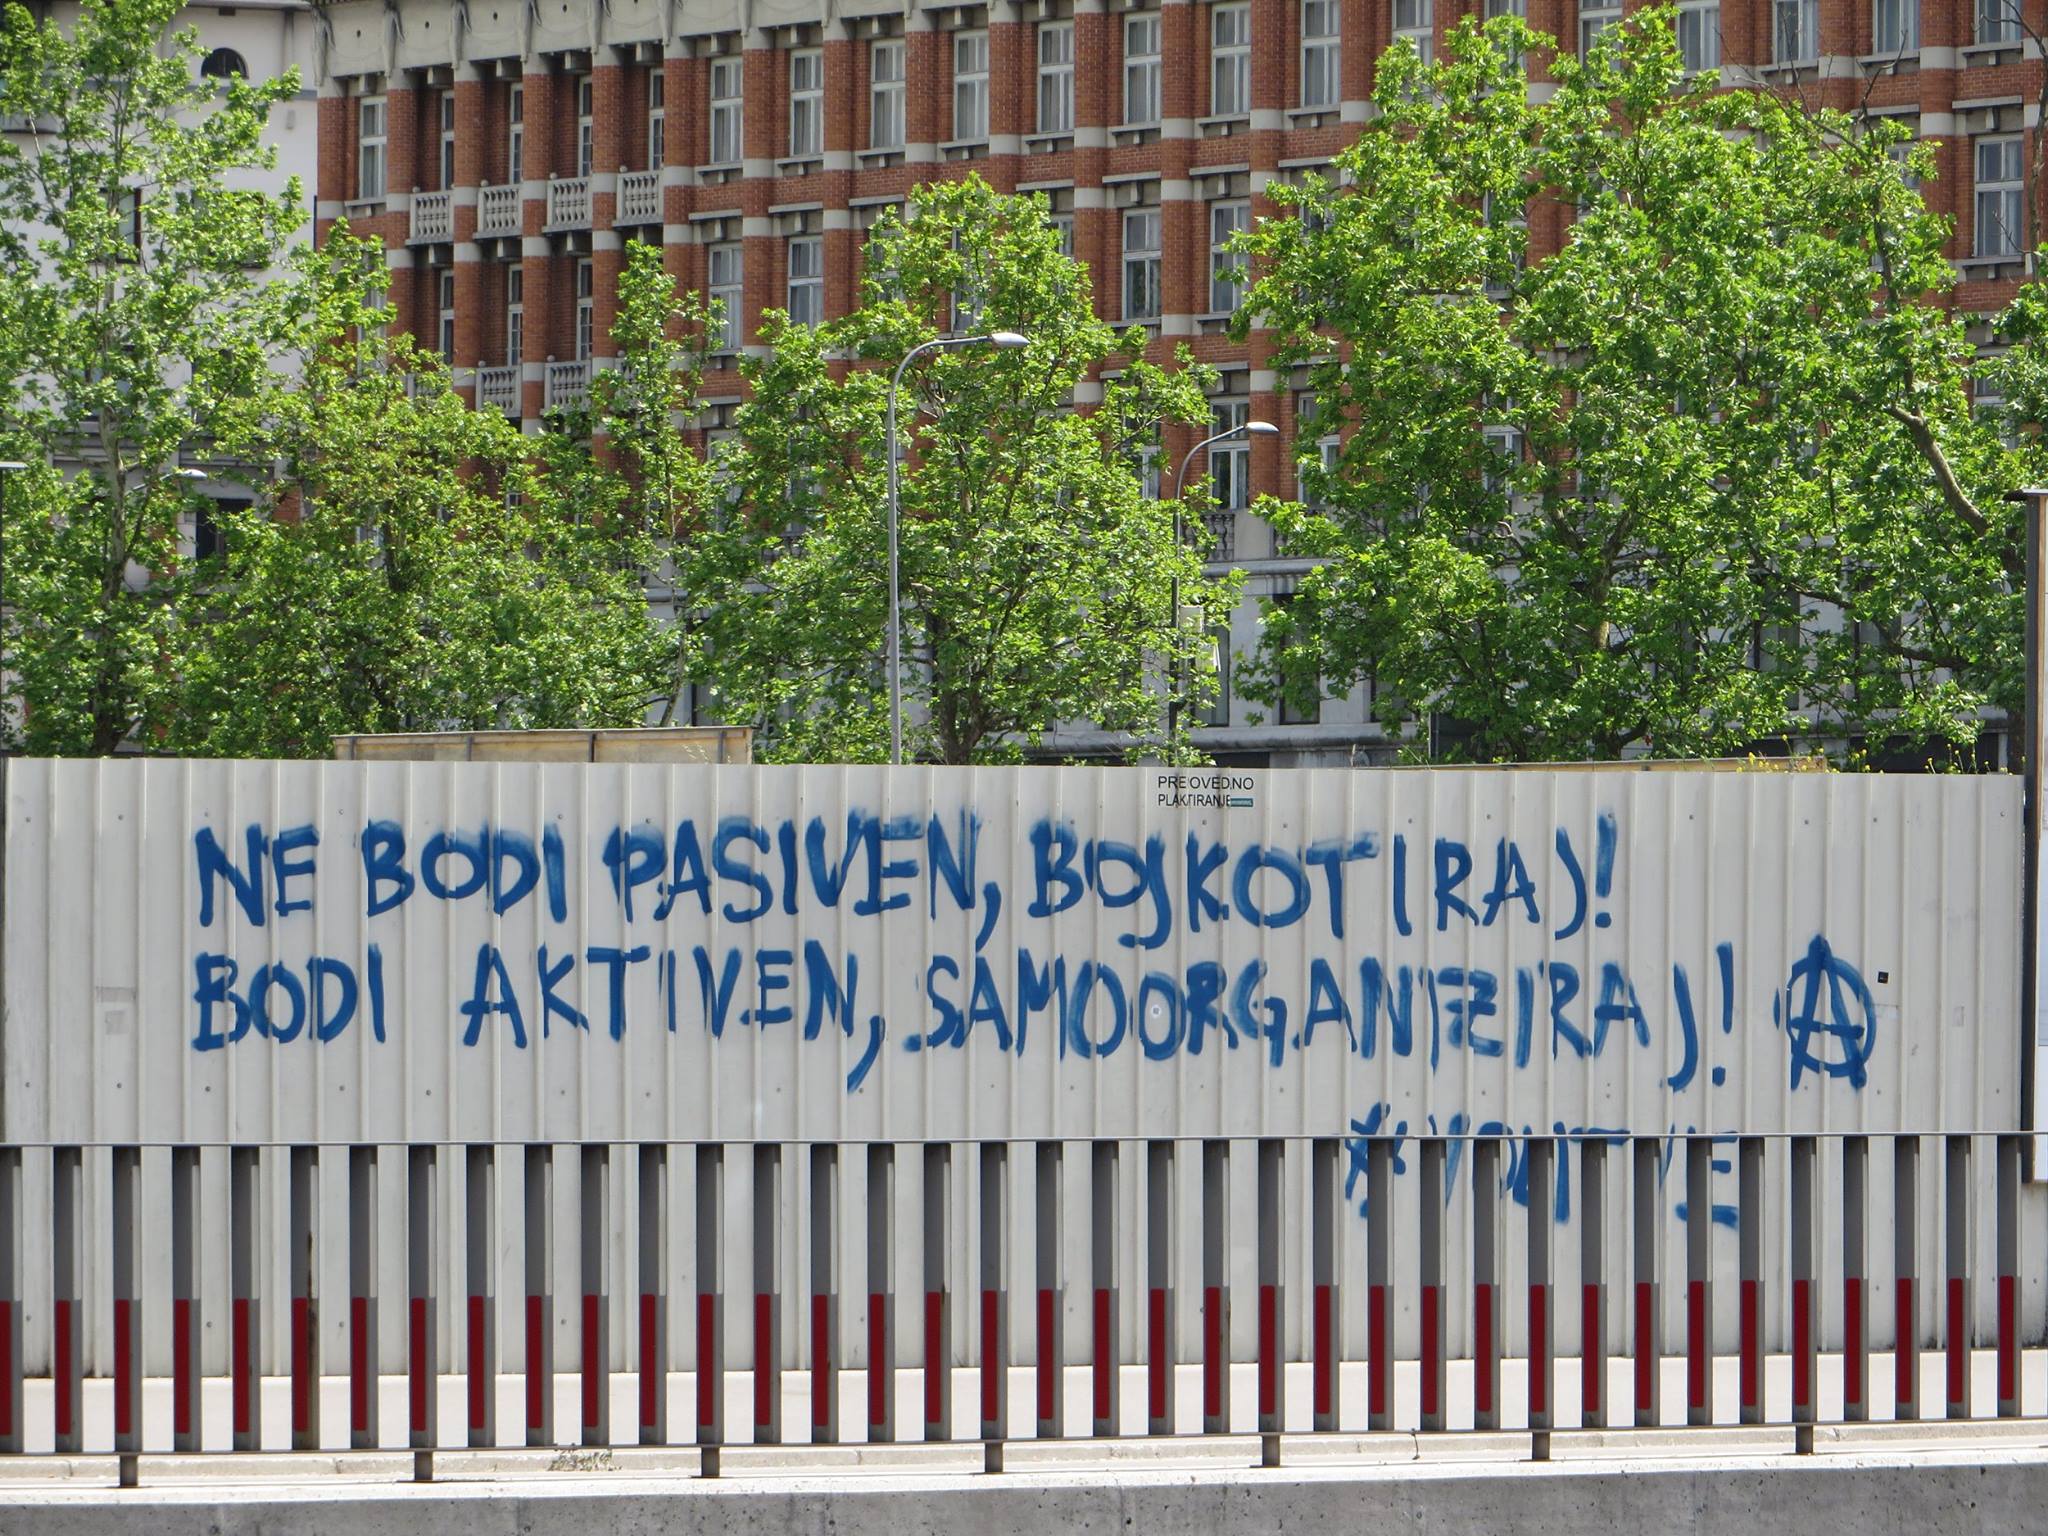 PREPOVEDNO
PLAKTIRANJE
NE BODI PASIVEN, BOJKOTIRAJ!
BODI AKTIVEN, SAMOORGANIZIRAJ! Ⓐ